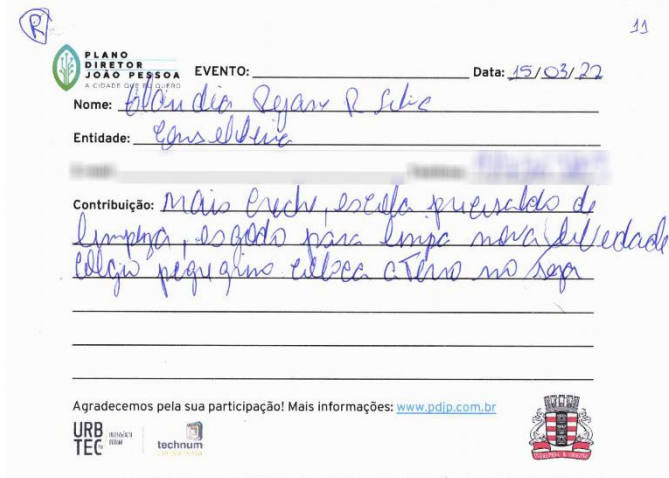 R
11
PLANO
DIRETOR
JOÃO PESSOA
A CIDADE QUE EU QUERO
EVENTO: Data: 15/03/22
Nome: Claudia Rejane R Silva
Entidade: Conselheira
Contribuição: Mais creche, escola precisando de
limpeza, esgodo para limpa nova
colegio coloca aterro no
Agradecemos pela sua participação! Mais informações: www.pdjp.com.br
URB
TEC
technum